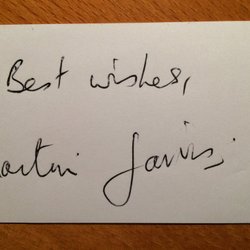 Best wishes,
artin Jarvis.